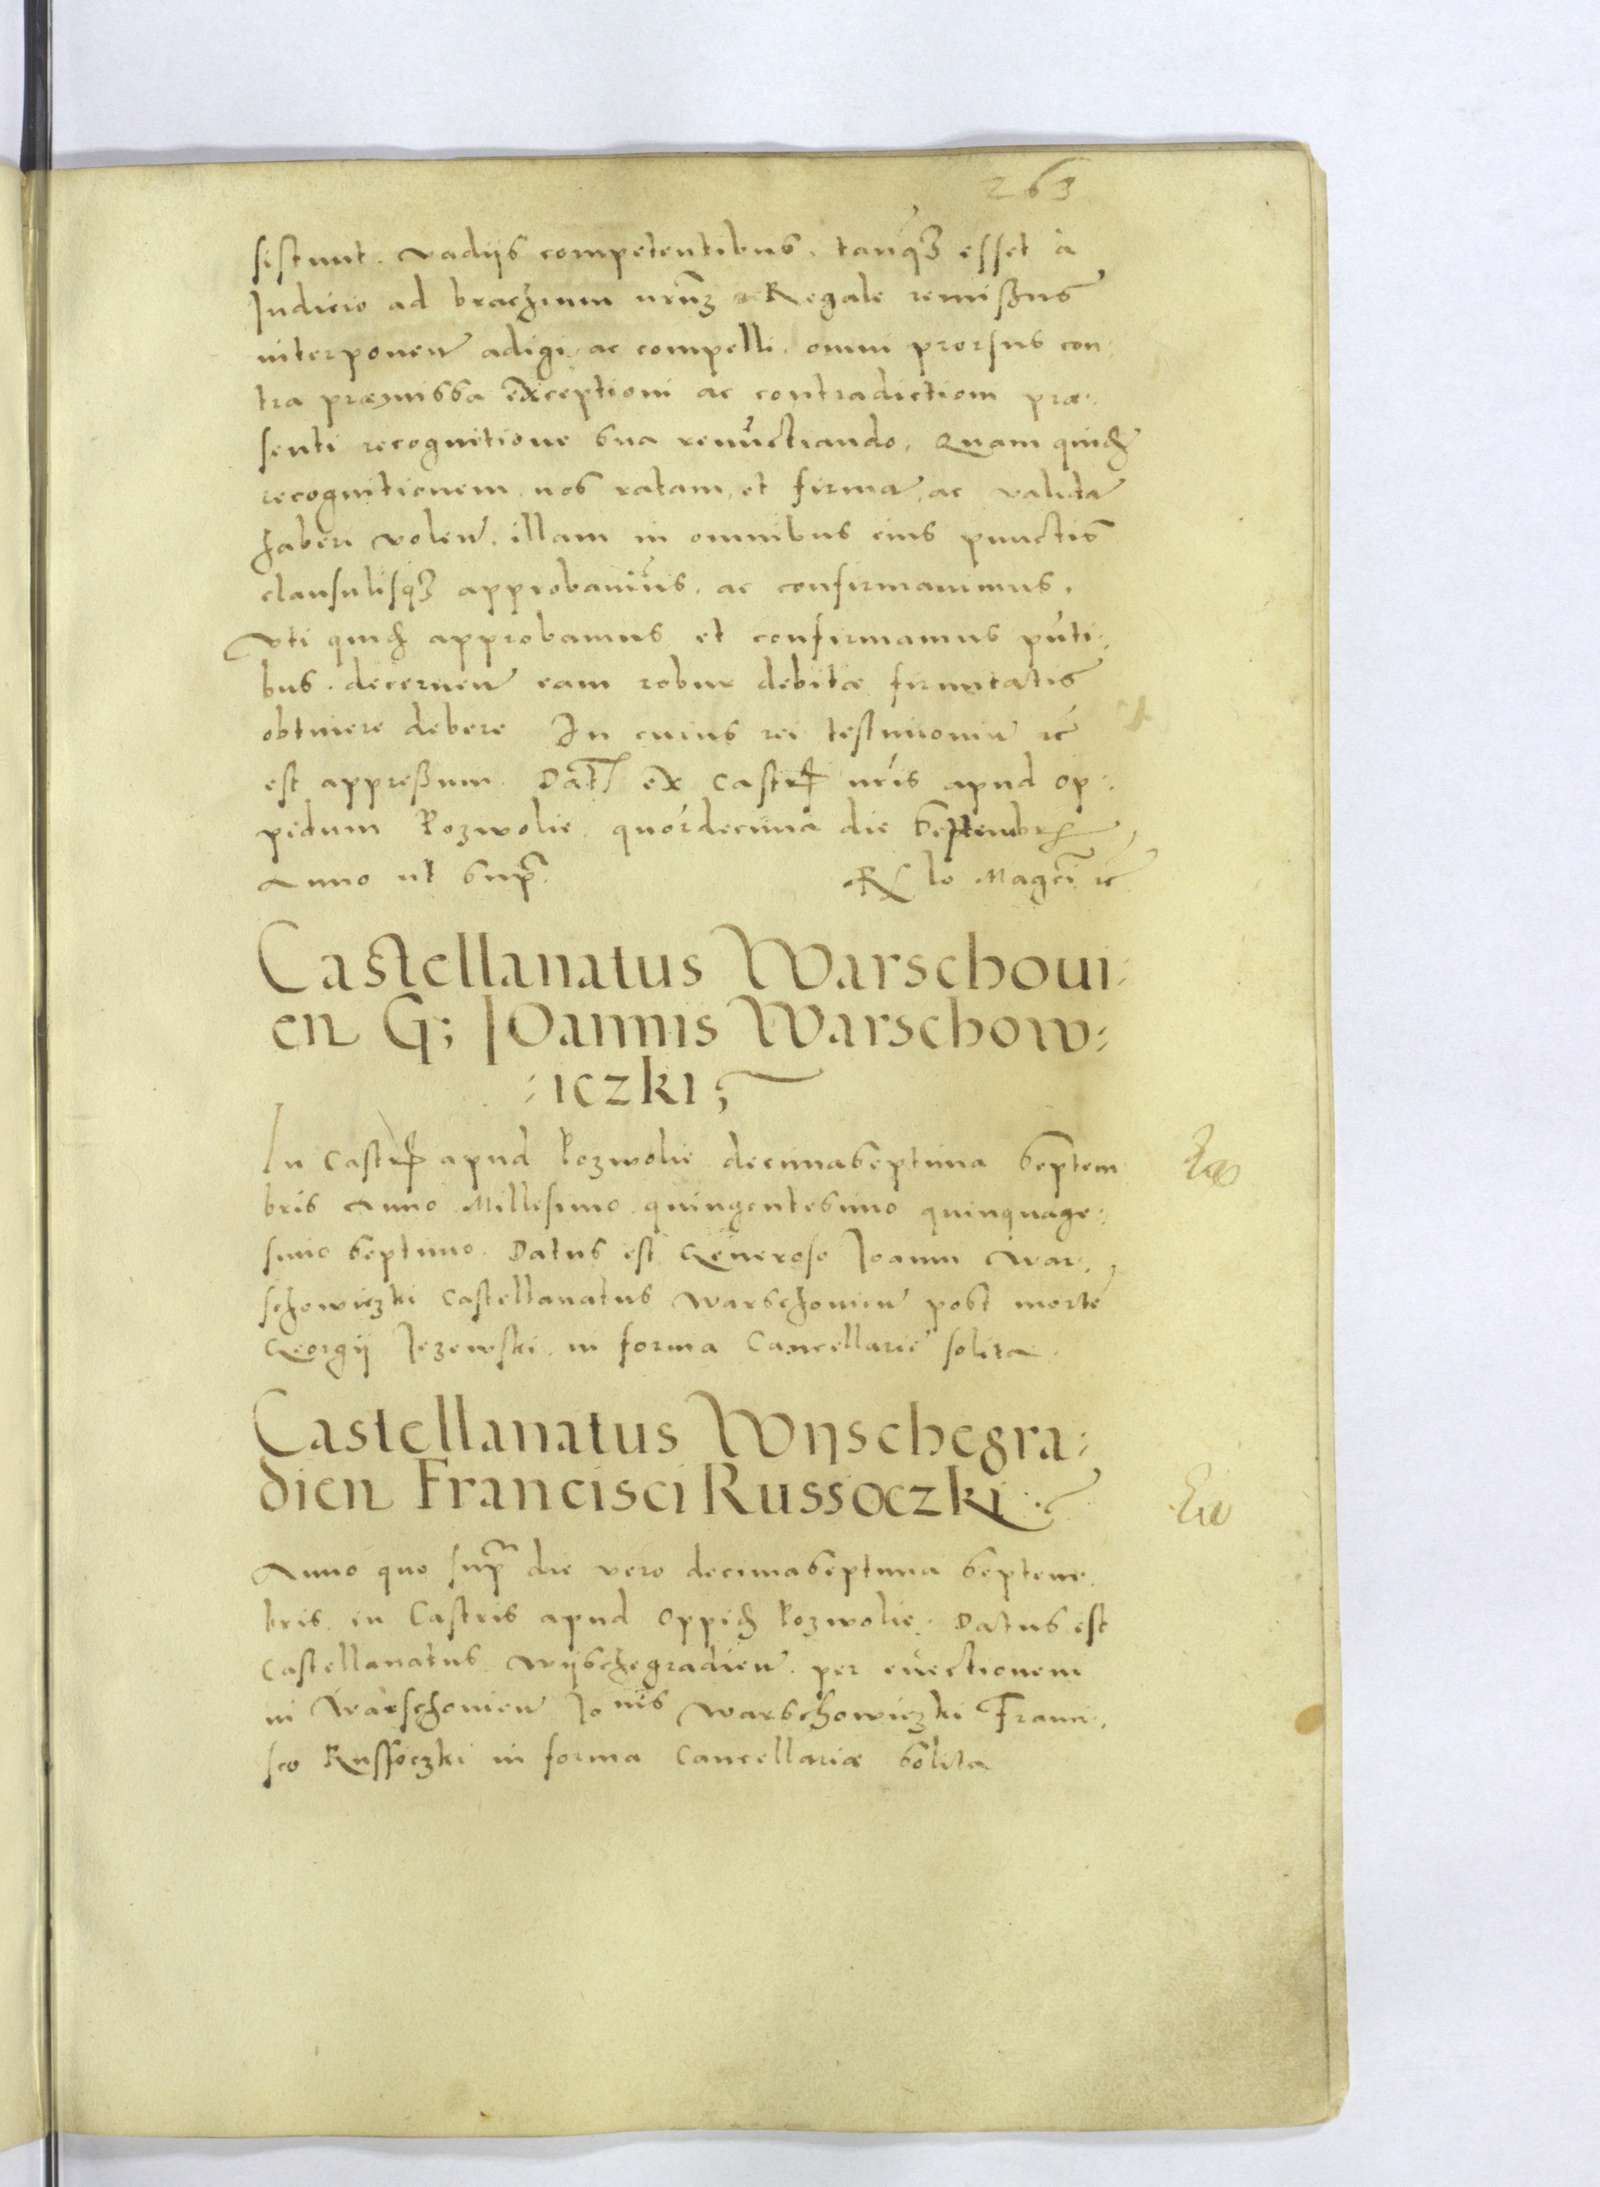 263
sistunt. vadijs competentibus, tanq3 esset à
Iudicio ad brachium nrũ3 Regale remissus
interponen adigi ac compelli, omni prorsus con:
tra præmissa exceptioni ac contradictioni præ:
senti recognitione sua renũctiando. Quam quid
recognitionem nos ratam et firma ac valida
haberi volen. illam in omnibus eius punctis
clausulisq3 approbauimus, ac confirmauimus.
Vti quid approbamus et confirmamus pñti:
bus. decernen eam robur debitæ firmitatis
obtinere debere In cuius rei testimoniu &c
est appressum. Dat ex castr nris apud op:
pidum Pozwolie. quardecima die Septembr
Anno ut supr. R lo Magci &c
Castellanatus Warschoui:
en G; Ioannis Warschow:
:iczki;
In castr apud Pozwolie decimaseptima Septem
bris Anno Millesimo quingentesimo quinquage:
simo septimo. Datus est Generoso Ioanni War:
schowiczki Castellanatus Warschouien post morte
Georgij Jezewski. in forma Cancellarie solita.
Castellanatus Wijschegra:
dien Francisci Russoczki.
Anno quo supr die vero decimaseptima Septem:
bris in Castris apud Oppid Pozwolie. Datus est
Castellanatus Wijschegradien. per euectionem
in Warschouien Ionis Warschowiczki Franci:
sco Russoczki in forma Cancellariæ solita